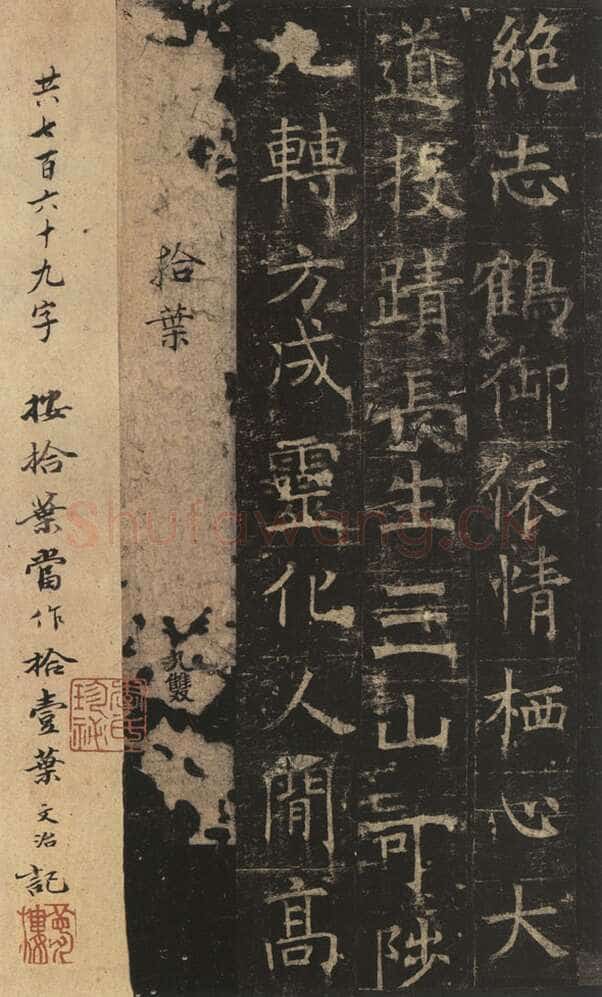 絶志鶴御依情栖心大
道投蹟長生三山可陟
九轉方成靈化人閒高
拾葉
九雙
共七百六十九字 按拾葉當作拾壹葉文治記
夢樓
shufawang.cn